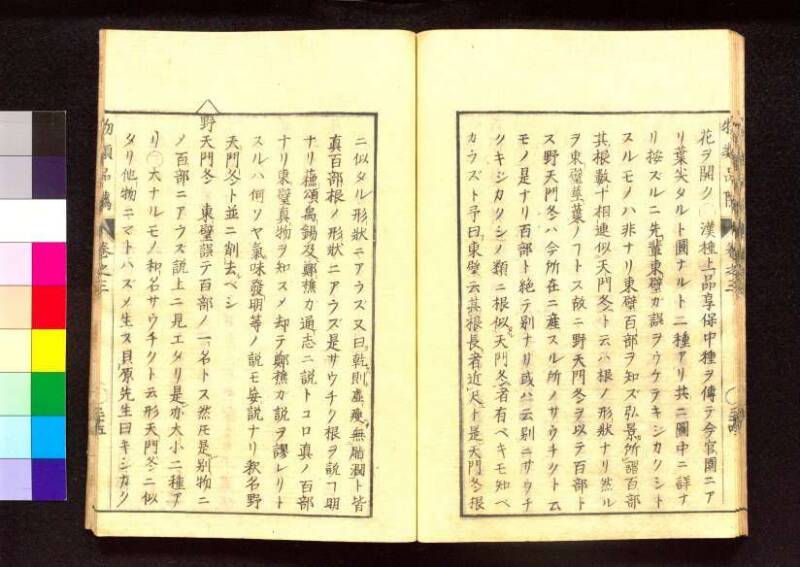 花ヲ開ク○漢種上品享保中種ヲ傳テ今官園ニア
リ葉尖タルト圓ナルト二種アリ共ニ圖中ニ詳ナ
リ按ズルニ先輩東璧カ誤ヲウケテキジカクシト
スルモノハ非ナリ東璧百部ヲ知ズ弘景所謂百部
其根數十相連似天門冬ト云ハ根ノ形狀ナリ然ル
ヲ東璧莖葉ノフトス故ニ野天門冬ヲ以テ百部ト
ス野天門冬ハ今所在ニ産スル所ノサウチクト云
モノ是ナリ百部ト絶テ別ナリ或ハ云別ニサウチ
クキシカクシノ類ニ根似天門冬者有ベキモ知ベ
カラズト予曰東璧云其根長者近尺ト是天門冬根
物類品隲 巻之三
ニ似タル形狀ニアラズ又曰乾則虚瘦無脂潤ト皆
真百部根ノ形狀ニアラズ是サウチク根ヲ説フ明
ナリ蘓頌禹錫及鄭樵カ通志ニ説トコロ真ノ百部
ナリ東璧真物ヲ知スメ却テ鄭樵カ説ヲ謬レリト
スルハ何ソヤ氣味發明等ノ説モ妄説ナリ釈名野
天門冬ト並ニ削去ベシ
野天門冬 東璧誤テ百部ノ一名トス然氏是別物ニ
メ百部ニアラズ説上ニ見エタリ是亦大小二種ア
リ○大ナルモノ和名サウチクト云形天門冬ニ似
タリ他物ニマトハズメ生ス貝原先生曰キシカクシ
物類品隲 巻之三